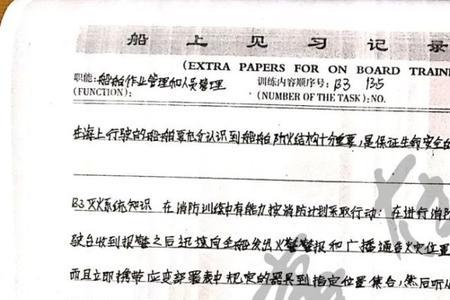 船上见习记录
(EXTRA PAPERS FOR ON BOARD TRAIN
职能: 船舶作业管理和人员管理 训练内容顺序号: B3 135
(FUNCTION): (NUMBER OF THE TASK):NO.
在海上行驶的船舶要充分认识到船舶防火结构十分重要,是保证生命安全的
B3灭火系统知识 在消防训练中有能力按消防计划采取行动: 在进行消防
驶台收到报警之后迅速向全船发出火警警报和广播通告火灾位置
而且立即携带应变部署表中规定的器具到指定位置集合,然后听从